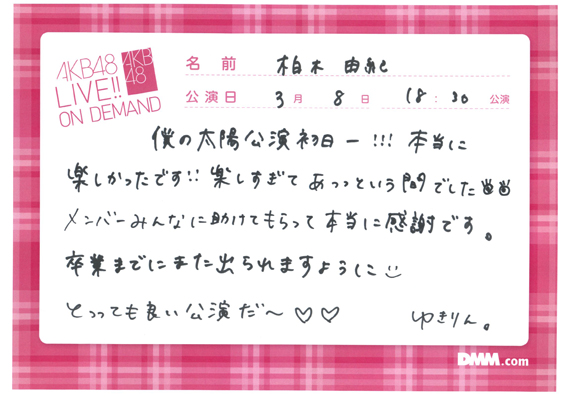 AKB48
LIVE!!
ON DEMAND
AKB
48
名前 柏木由紀
公演日 3月8日 18:30公演
僕の太陽公演初日ー!!! 本当に
楽しかったです!! 楽しすぎてあっっという間でした
メンバーみんなに助けてもらって本当に感謝です。
卒業までにまた出られますように
とっっても良い公演だ〜♡♡ ゆきりん。
DMM.com